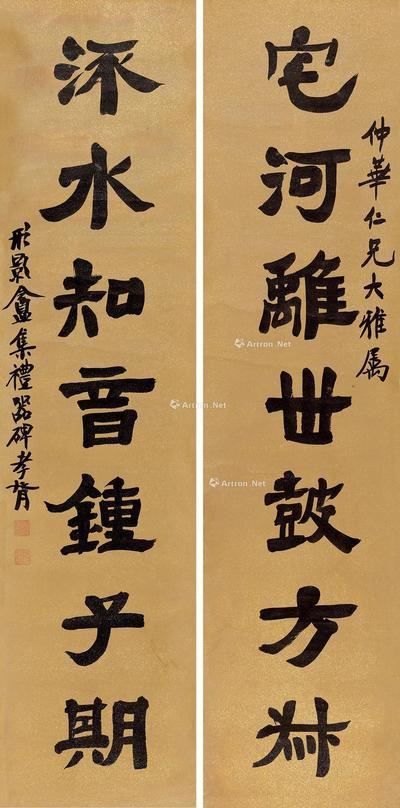 仲華仁兄大雅屬
宅河離世鼓方叔
流水知音鍾子期
形影盦集禮器碑孝胥
Artron.Net
Artron.Net
Artron.Net